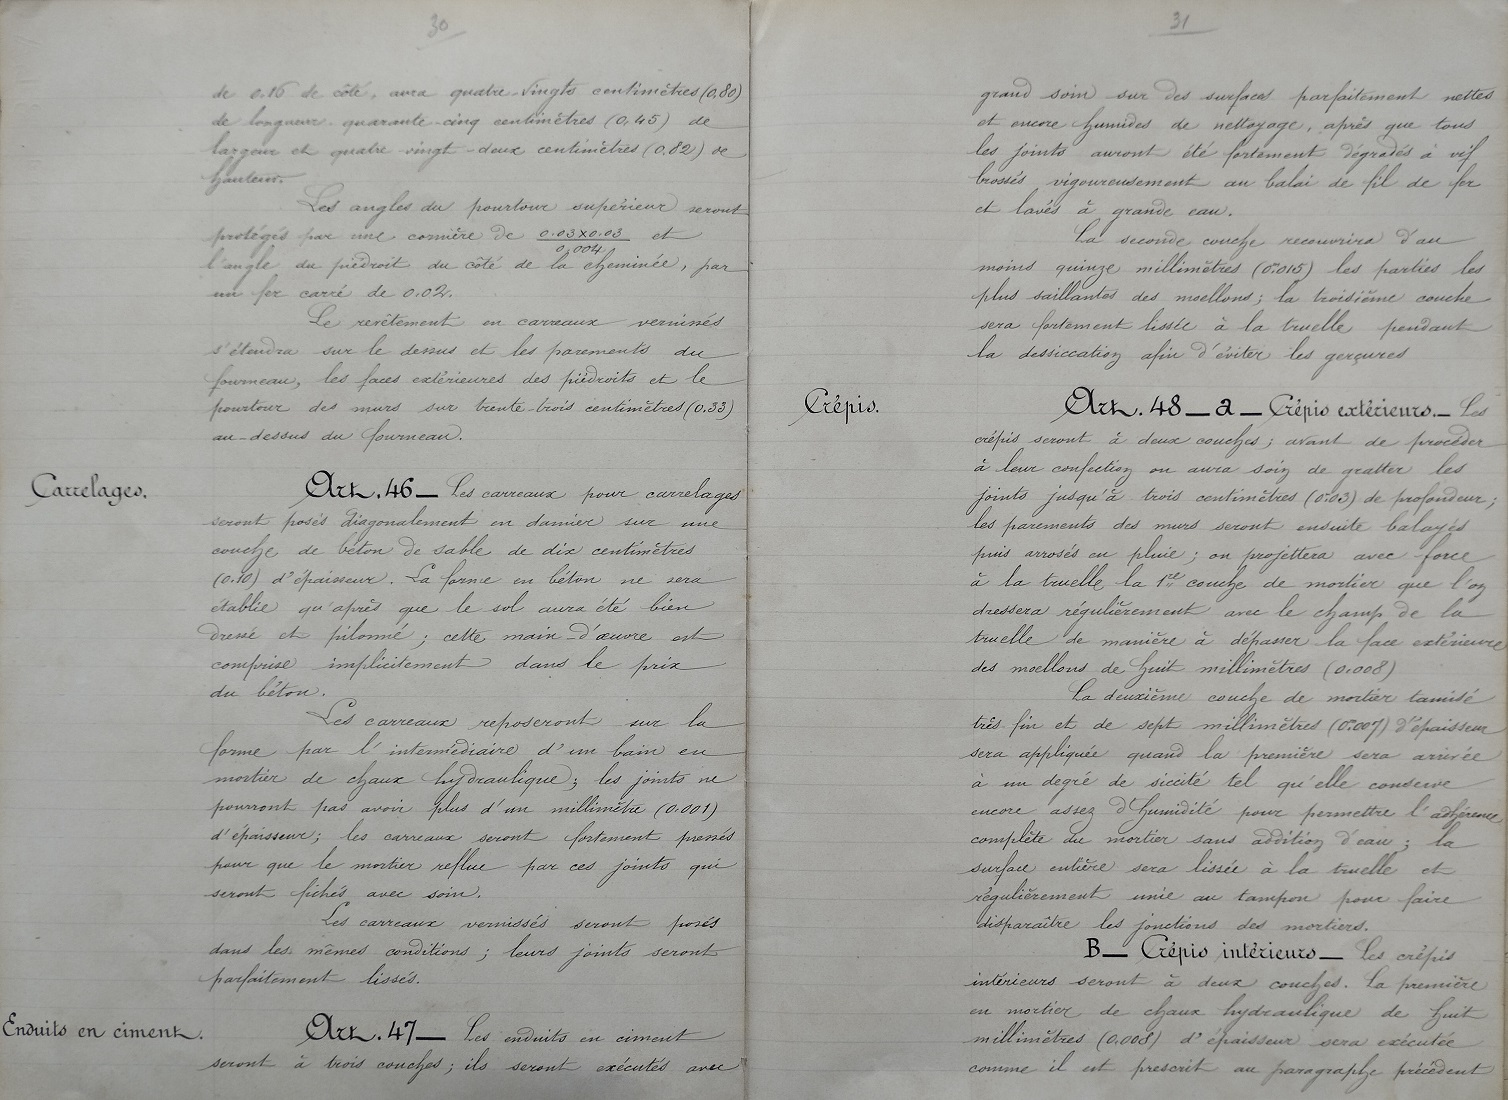 30
de 0.16 de côté, aura quatre-vingts centimètres (0,80)
de longueur quarante-cinq centimètres (0,45) de
largeur et quatre-vingt-deux centimètres (0,82) de
hauteur.
Les angles du pourtour supérieur seront
protégés par une cornière de 0.03x0.03/0,004 et
l'angle du piédroit du côté de la cheminée, par
un fer carré de 0.02.
Le revêtement en carreaux vernissés
s'étendra sur le dessus et les parements du
fourneau, les faces extérieures des piédroits et le
pourtour des murs sur trente-trois centimètres (0.33)
au-dessus du fourneau.
Carrelages.
Art. 46 — Les carreaux pour carrelages
seront posés diagonalement en damier sur une
couche de béton de sable de dix centimètres
(0.10) d'épaisseur. La forme en béton ne sera
établie qu'après que le sol aura été bien
dressé et pilonné ; cette main-d'œuvre est
comprise implicitement dans le prix
du béton.
Les carreaux reposeront sur la
forme par l'intermédiaire d'un bain en
mortier de chaux hydraulique ; les joints ne
pourront pas avoir plus d'un millimètre (0.001)
d'épaisseur ; les carreaux seront fortement pressés
pour que le mortier reflue par ces joints qui
seront fichés avec soin.
Les carreaux vernissés seront posés
dans les mêmes conditions ; leurs joints seront
parfaitement lissés.
Enduits en ciment.
Art. 47 — Les enduits en ciment
seront à trois couches ; ils seront exécutés avec
31
grand soin sur des surfaces parfaitement nettes
et encore humides de nettoyage, après que tous
les joints auront été fortement dégradés à vif
brossés vigoureusement au balai de fil de fer
et lavés à grande eau.
La seconde couche recouvrira d'au
moins quinze millimètres (0m015) les parties les
plus saillantes des moellons ; la troisième couche
sera fortement lissée à la truelle pendant
la dessiccation afin d'éviter les gerçures
Crépis.
Art. 48 — a — Crépis extérieurs. — Les
crépis seront à deux couches ; avant de procéder
à leur confection on aura soin de gratter les
joints jusqu'à trois centimètres (0m03) de profondeur ;
les parements des murs seront ensuite balayés
puis arrosés en pluie ; on projettera avec force
à la truelle la 1re couche de mortier que l'on
dressera régulièrement avec le champ de la
truelle de manière à dépasser la face extérieure
des moellons de huit millimètres (0.008)
La deuxième couche de mortier tamisé
très fin et de sept millimètres (0m007) d'épaisseur
sera appliquée quand la première sera arrivée
à un degré de siccité tel qu'elle conserve
encore assez d'humidité pour permettre l'adhérence
complète du mortier sans addition d'eau ; la
surface entière sera lissée à la truelle et
régulièrement unie au tampon pour faire
disparaître les jonctions des mortiers.
B — Crépis intérieurs — Les crépis
intérieurs seront à deux couches. La première
en mortier de chaux hydraulique de huit
millimètres (0.008) d'épaisseur sera exécutée
comme il est prescrit au paragraphe précédent